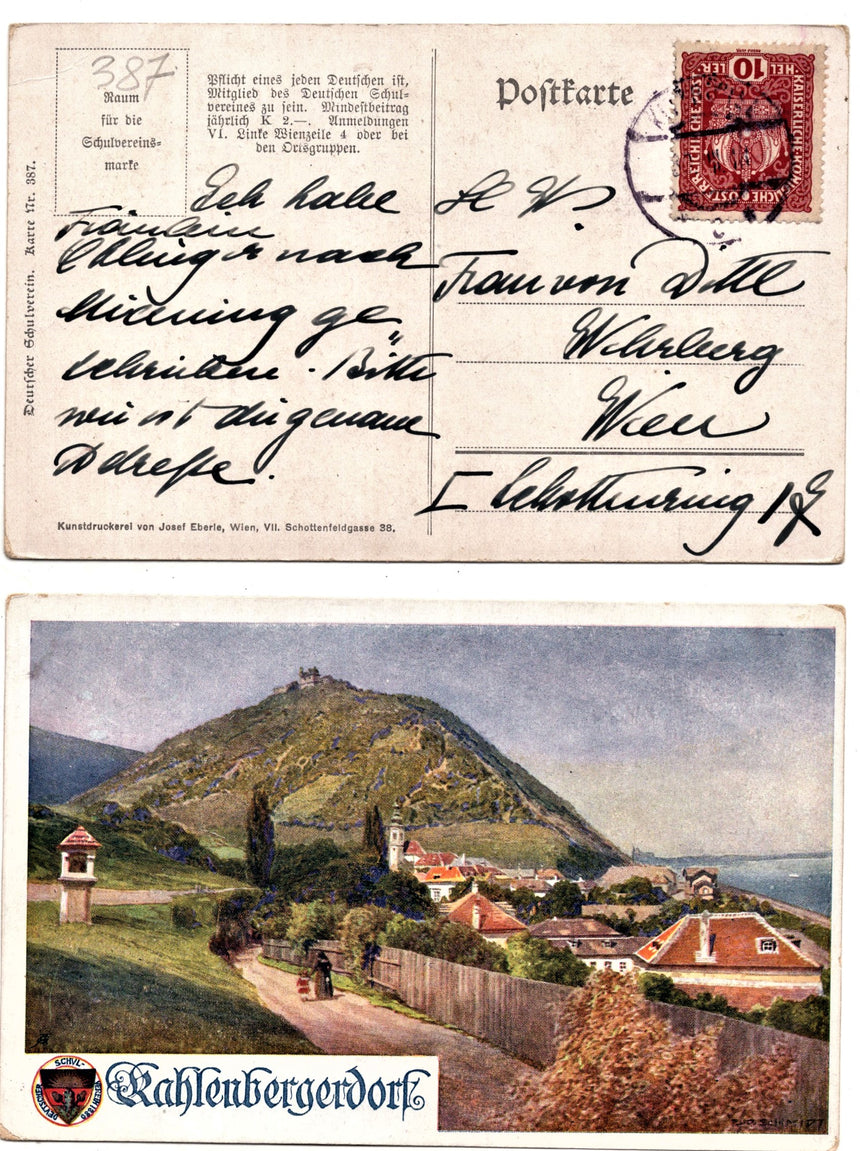 387
Raum
für die
Schulvereins=
marke
Pflicht eines jeden Deutschen ist,
Mitglied des Deutschen Schul-
vereines zu sein. Mindestbeitrag
jährlich K 2.—. Anmeldungen
VI. Linke Wienzeile 4 oder bei
den Ortsgruppen.
Postkarte
HEL 10 LER
KAISERLICHE KÖNIGLICHE ÖSTERREICHISCHE POST
Deutscher Schulverein. Karte Nr. 387.
Ich habe
Fräulein
nach
Mieming ge„
schrieben. Bitte
wie ist die genaue
Adreße.
Frau von Dittl
Wehrburg
Wien
I Schottenring
Kunstdruckerei von Josef Eberle, Wien, VII. Schottenfeldgasse 38.
SCHVL-
VEREIN
DEVTSCHER
1880
Kahlenbergerdorf
SCHMIDT